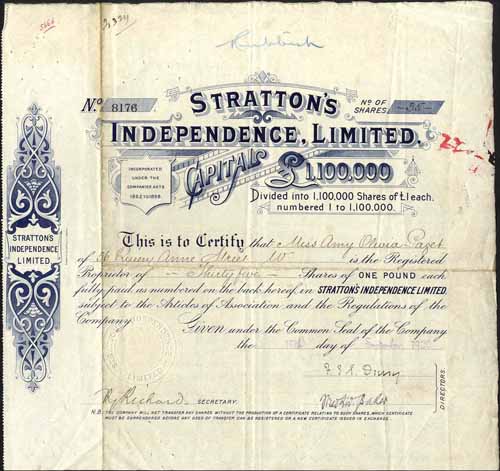 Rubbish
No. 8176
STRATTON'S
INDEPENDENCE, LIMITED.
No OF SHARES -35-
INCORPORATED
UNDER THE
COMPANIES ACTS
1862 TO 1898
CAPITAL £1,100,000
Divided into 1,100,000 Shares of £1 each,
numbered 1 to 1,100,000.
STRATTON'S
INDEPENDENCE
LIMITED.
This is to Certify that Miss Amy Olivia Paget
of Queen Anne Street W is the Registered
Proprietor of - Thirty five - Shares of ONE POUND each
fully paid, as numbered on the back hereof, in STRATTON'S INDEPENDENCE LIMITED,
subject to the Articles of Association and the Regulations of the
Company
Given under the Common Seal of the Company
the day of
DIRECTORS.
SECRETARY.
N.B. THE COMPANY WILL NOT TRANSFER ANY SHARES WITHOUT THE PRODUCTION OF A CERTIFICATE RELATING TO SUCH SHARES, WHICH CERTIFICATE
MUST BE SURRENDERED BEFORE ANY DEED OF TRANSFER CAN BE REGISTERED OR A NEW CERTIFICATE ISSUED IN EXCHANGE.